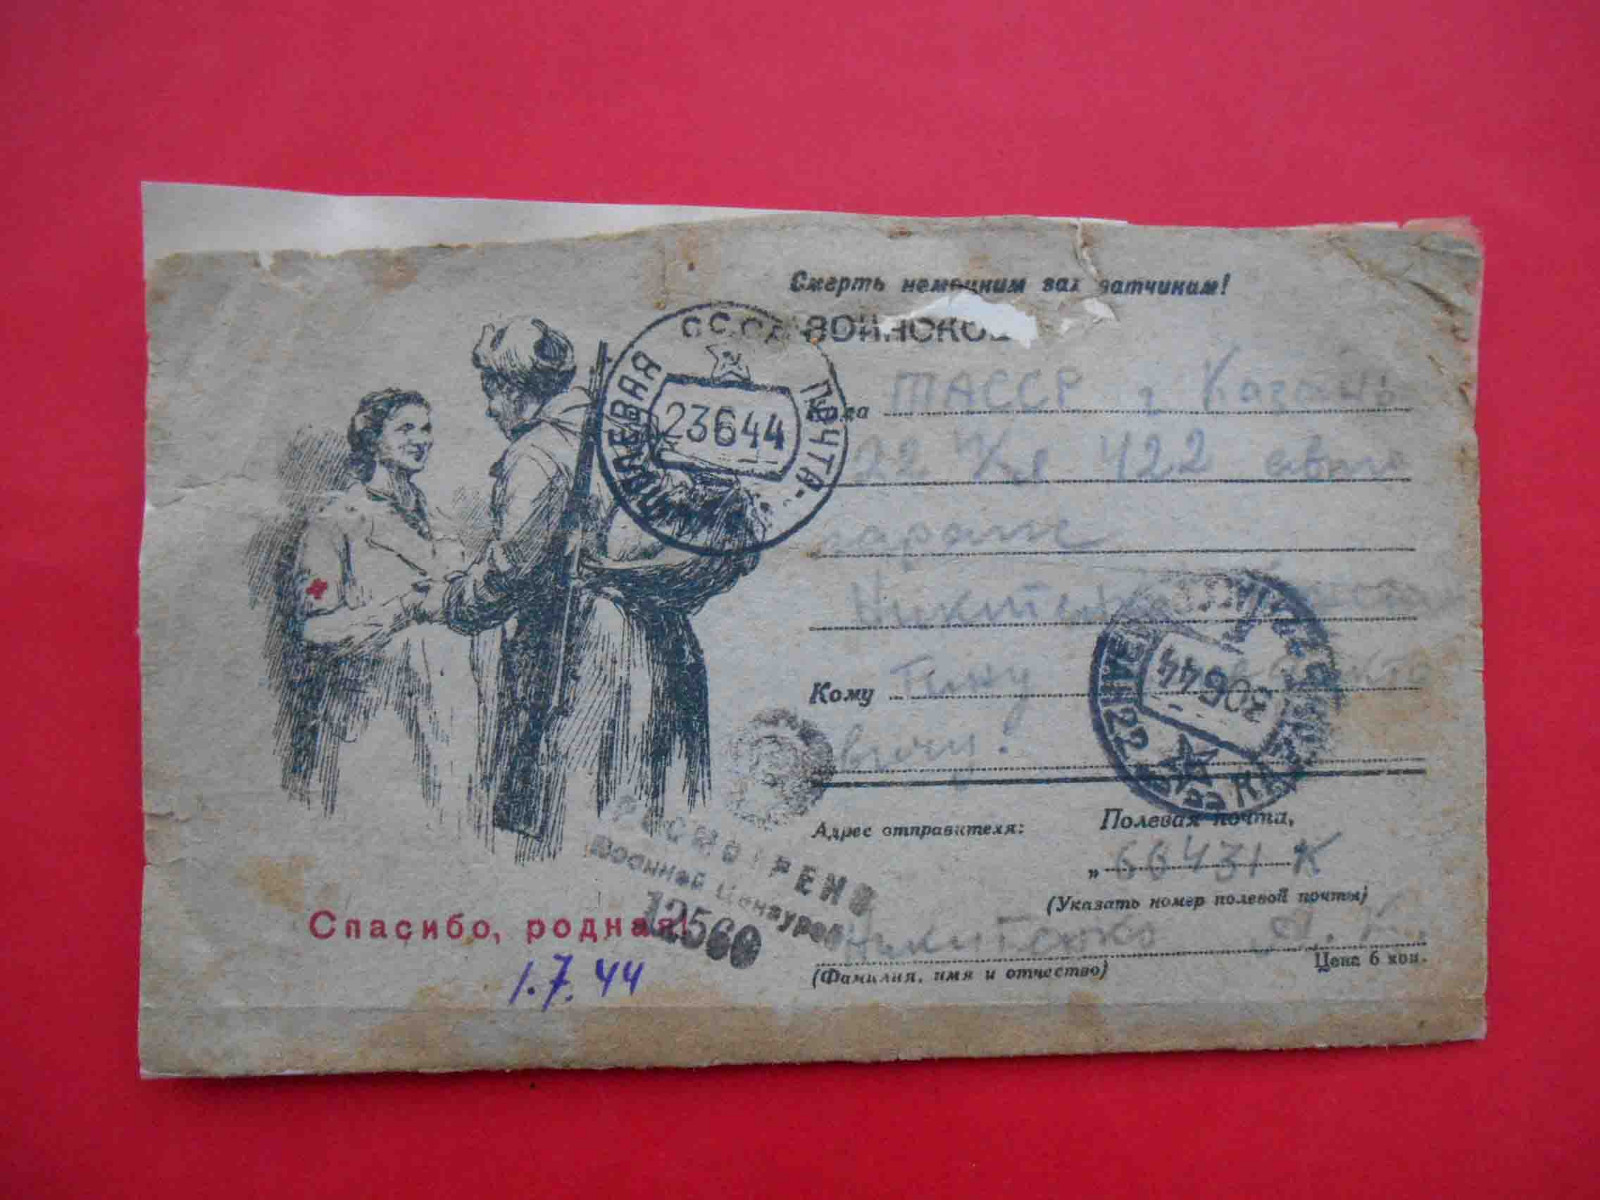 Смерть немецким захватчикам!
ВОИНСКОЕ
СССР
ПОЛЕВАЯ ПОЧТА
23644
Куда ТАССР г Казань
22 п/я 422 авто
гараж
Никитенко
Кому Гину
вичу.
30644
КАЗАНЬ 22
Адрес отправителя: Полевая почта,
„ 66431 К
(Указать номер полевой почты)
Никитенко А. К.
(Фамилия, имя и отчество)
Цена 6 коп.
ПРОСМОТРЕНО
Военной Цензурой
12560
Спасибо, родная!
1.7.44